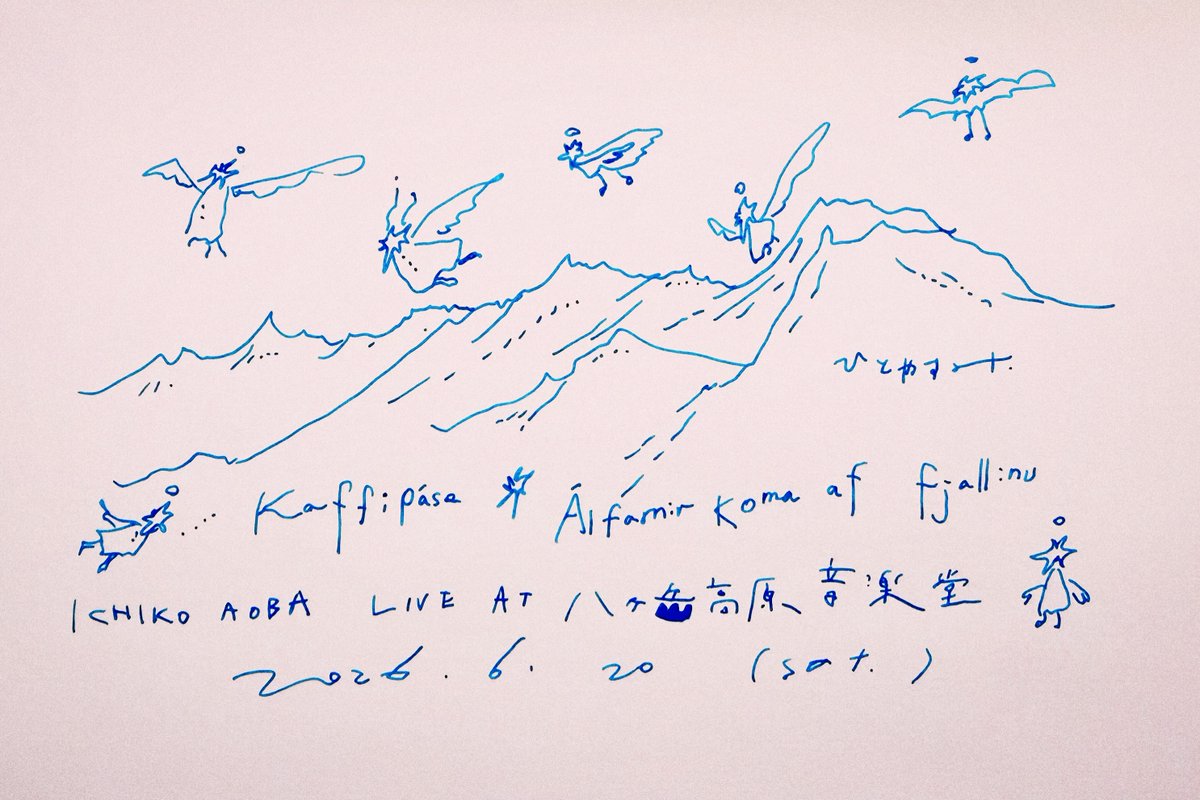 ひとやすみ.
Kaffipása Álfarnir Koma af fjallinu
ICHIKO AOBA LIVE AT 八ヶ岳高原音楽堂
2026.6.20 (sat.)